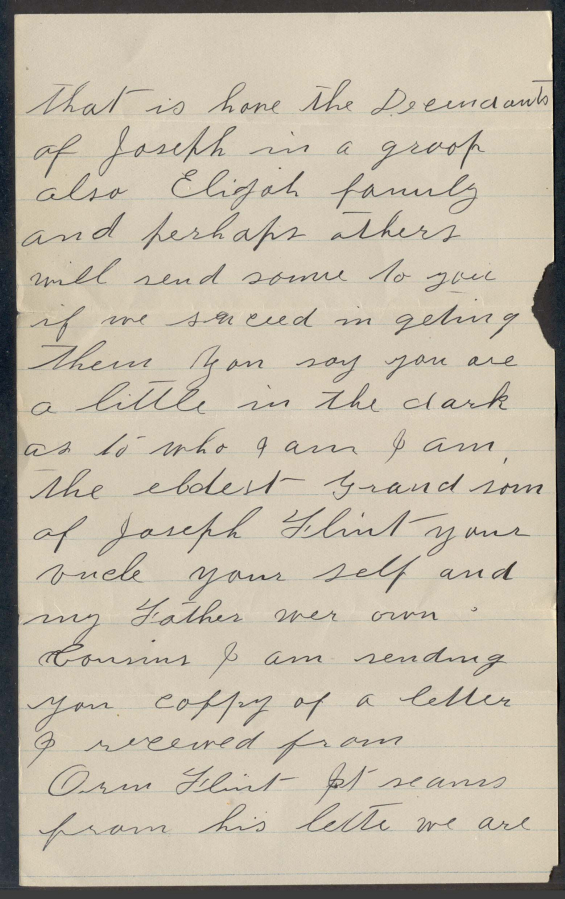 that is have the Decendants
of Joseph in a groop
also Elijah family
and perhaps others
will send some to you
if we suceed in geting
them You say you are
a little in the dark
as to who I am I am
the eldest Grand son
of Joseph Flint your
uncle your self and
my Father wer own
Cousins I am sending
you coppy of a letter
I received from
Orm Flint It seams
from his lette we are